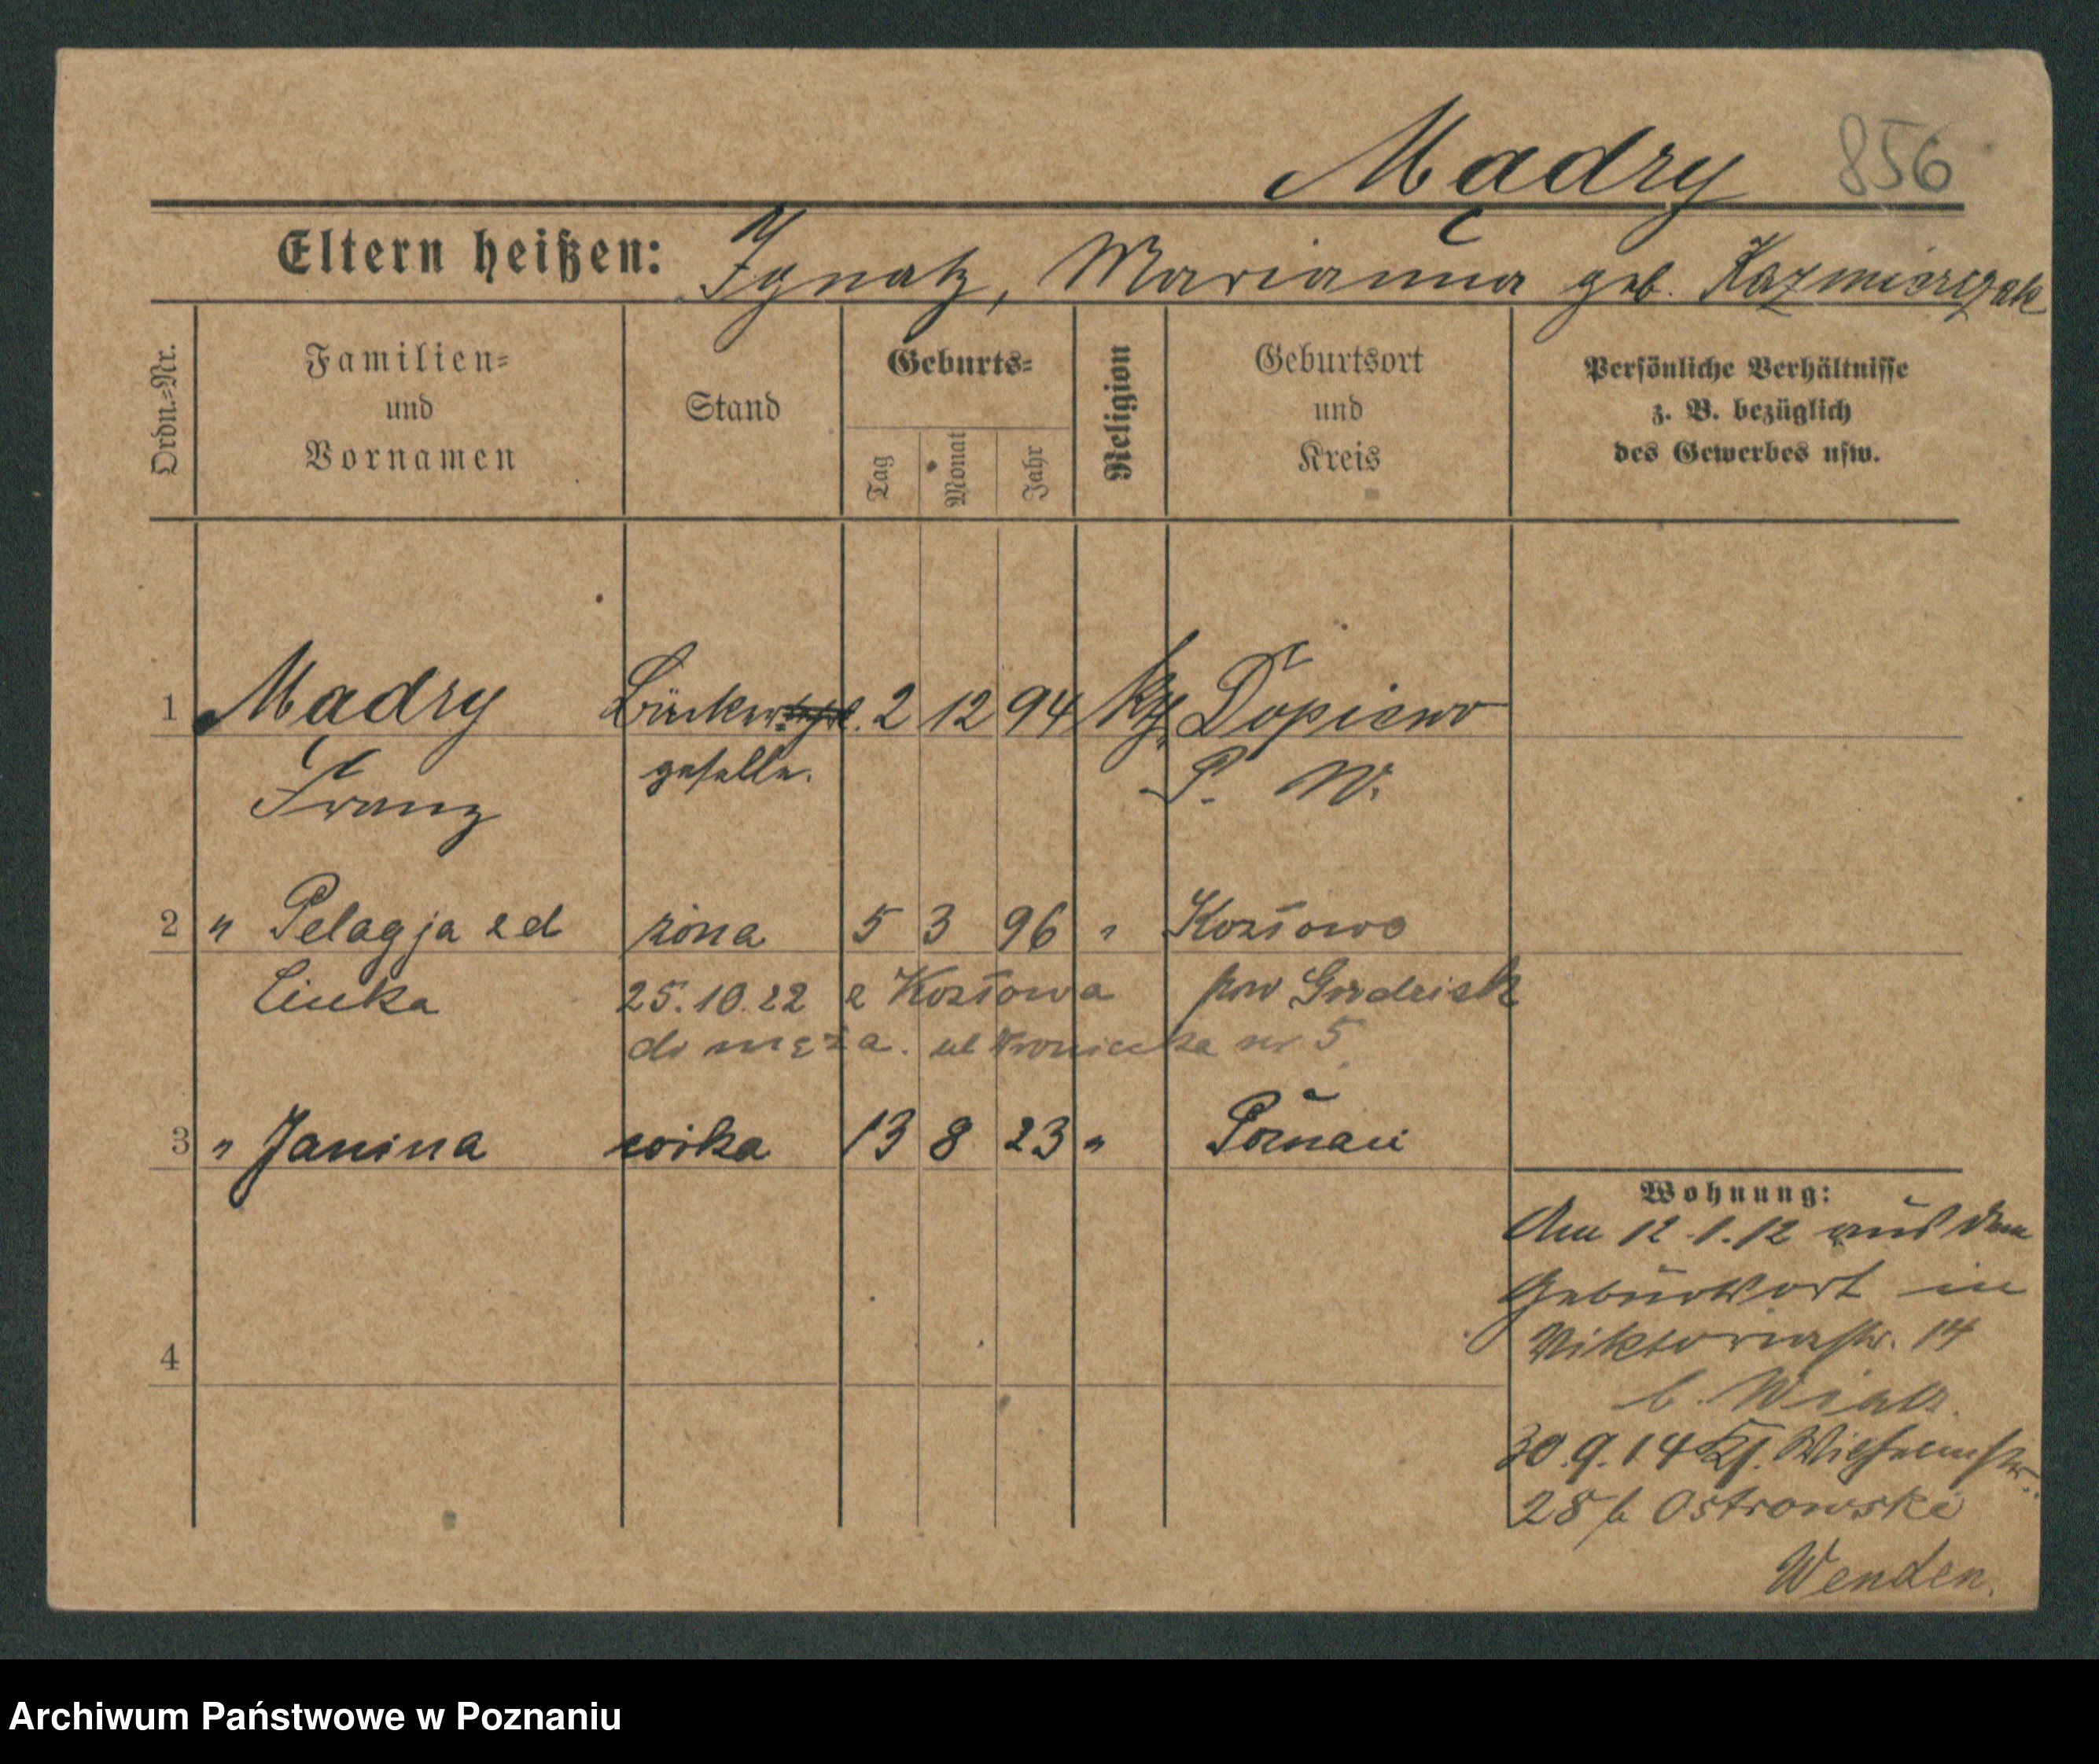 Mądry 856
Eltern heißen: Ignatz, Marianna geb. Kazmierczak
Ordn.=Nr.
Familien=
und
Vornamen
Stand
Geburts=
Tag
Monat
Jahr
Religion
Geburtsort
und
Kreis
Persönliche Verhältnisse
z. B. bezüglich
des Gewerbes usw.
1 Mądry 2 12 94 Dopiewo
Franz geselle. P. W.
2 " Pelagja zd żona 5 3 96 " Kozłowo
25.10.22 z Kozłowa pow Grodzisk
do męża. ul nr 5
3 " Janina córka 13 8 23 " Poznań
4
Wohnung:
Am 12.1.12 aus dem
Geburtsort in
Viktoriastr. 14
b.
30.9.14 Wilhelmstr.
28 b Ostrowski
Wenden.
Archiwum Państwowe w Poznaniu